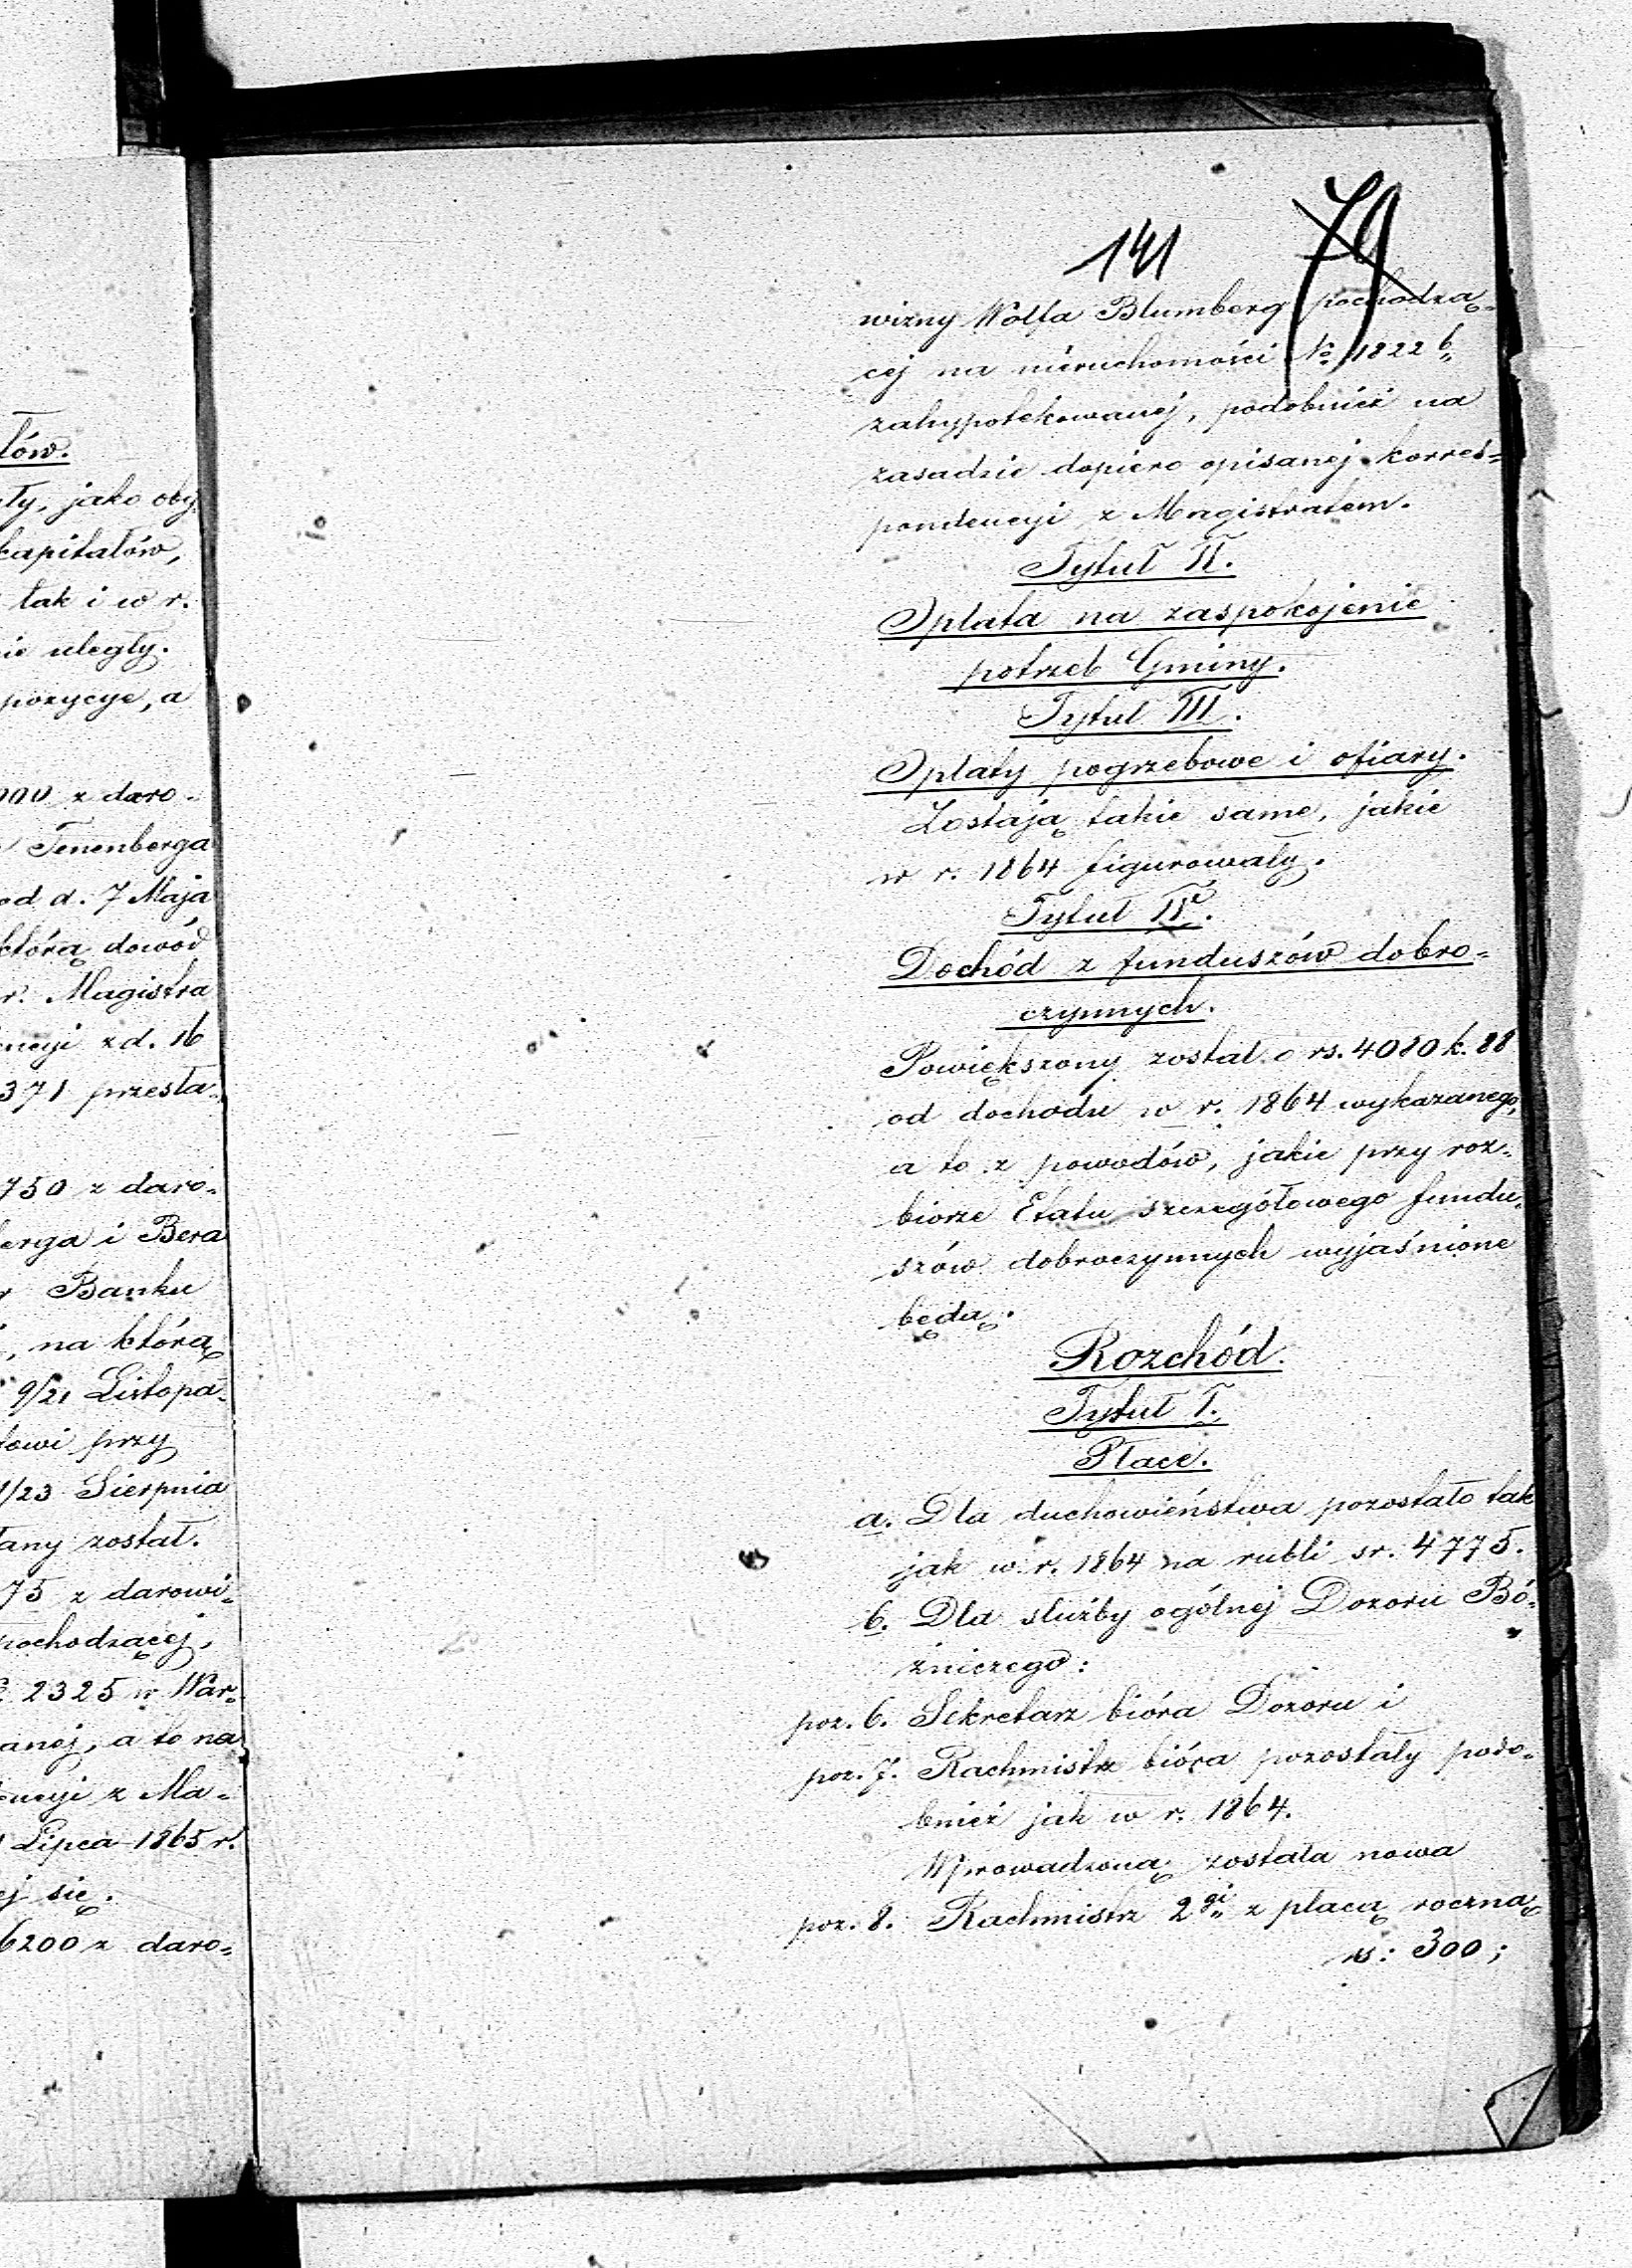 łów.
ły, jako oby
kapitałów,
tak i w r.
ie uległy.
pozycye, a
000 z daro-
Tenenberga
od d. 7 Maja
którą dowód
r. Magistra
encyi z d. 16
371 przesła-
750 z daro-
berga i Bera
w Banku
, na którą
9/21 Listopa-
łowi przy
/23 Sierpnia
łany został.
75 z darowi-
pochodzącej,
2325 w War-
anej, a to na
encyi z Ma-
Lipca 1865 r.
ej się.
6200 z daro-
141 79
wizny Wolfa Blumberg pochodzą-
cej na nieruchomości No 1822 b
zahypotekowanej, podobnież na
zasadzie dopiero opisanej korres-
pondencyi z Magistratem.
Tytuł II.
Opłata na zaspokojenie
potrzeb Gminy.
Tytuł III.
Opłaty pogrzebowe i ofiary.
Zostają takie same, jakie
w r. 1864 figurowały.
Tytuł IV.
Dochód z funduszów dobro-
czynnych.
Powiększony został o rs. 4080 k. 88
od dochodu w r. 1864 wykazanego,
a to z powodów, jakie przy roz-
biorze Etatu szczegółowego fundu-
szów dobroczynnych wyjaśnione
będą.
Rozchód.
Tytuł I.
Płace.
a. Dla duchowieństwa pozostało tak
jak w r. 1864 na rubli sr. 4775.
b. Dla służby ogólnej Dozoru Bó-
żniczego:
poz. 6. Sekretarz bióra Dozoru i
poz. 7. Rachmistrz bióra pozostały podo-
bnież jak w r. 1864.
Wprowadzoną została nowa
poz. 8. Rachmistrz 2gi z płacą roczną
rs: 300;